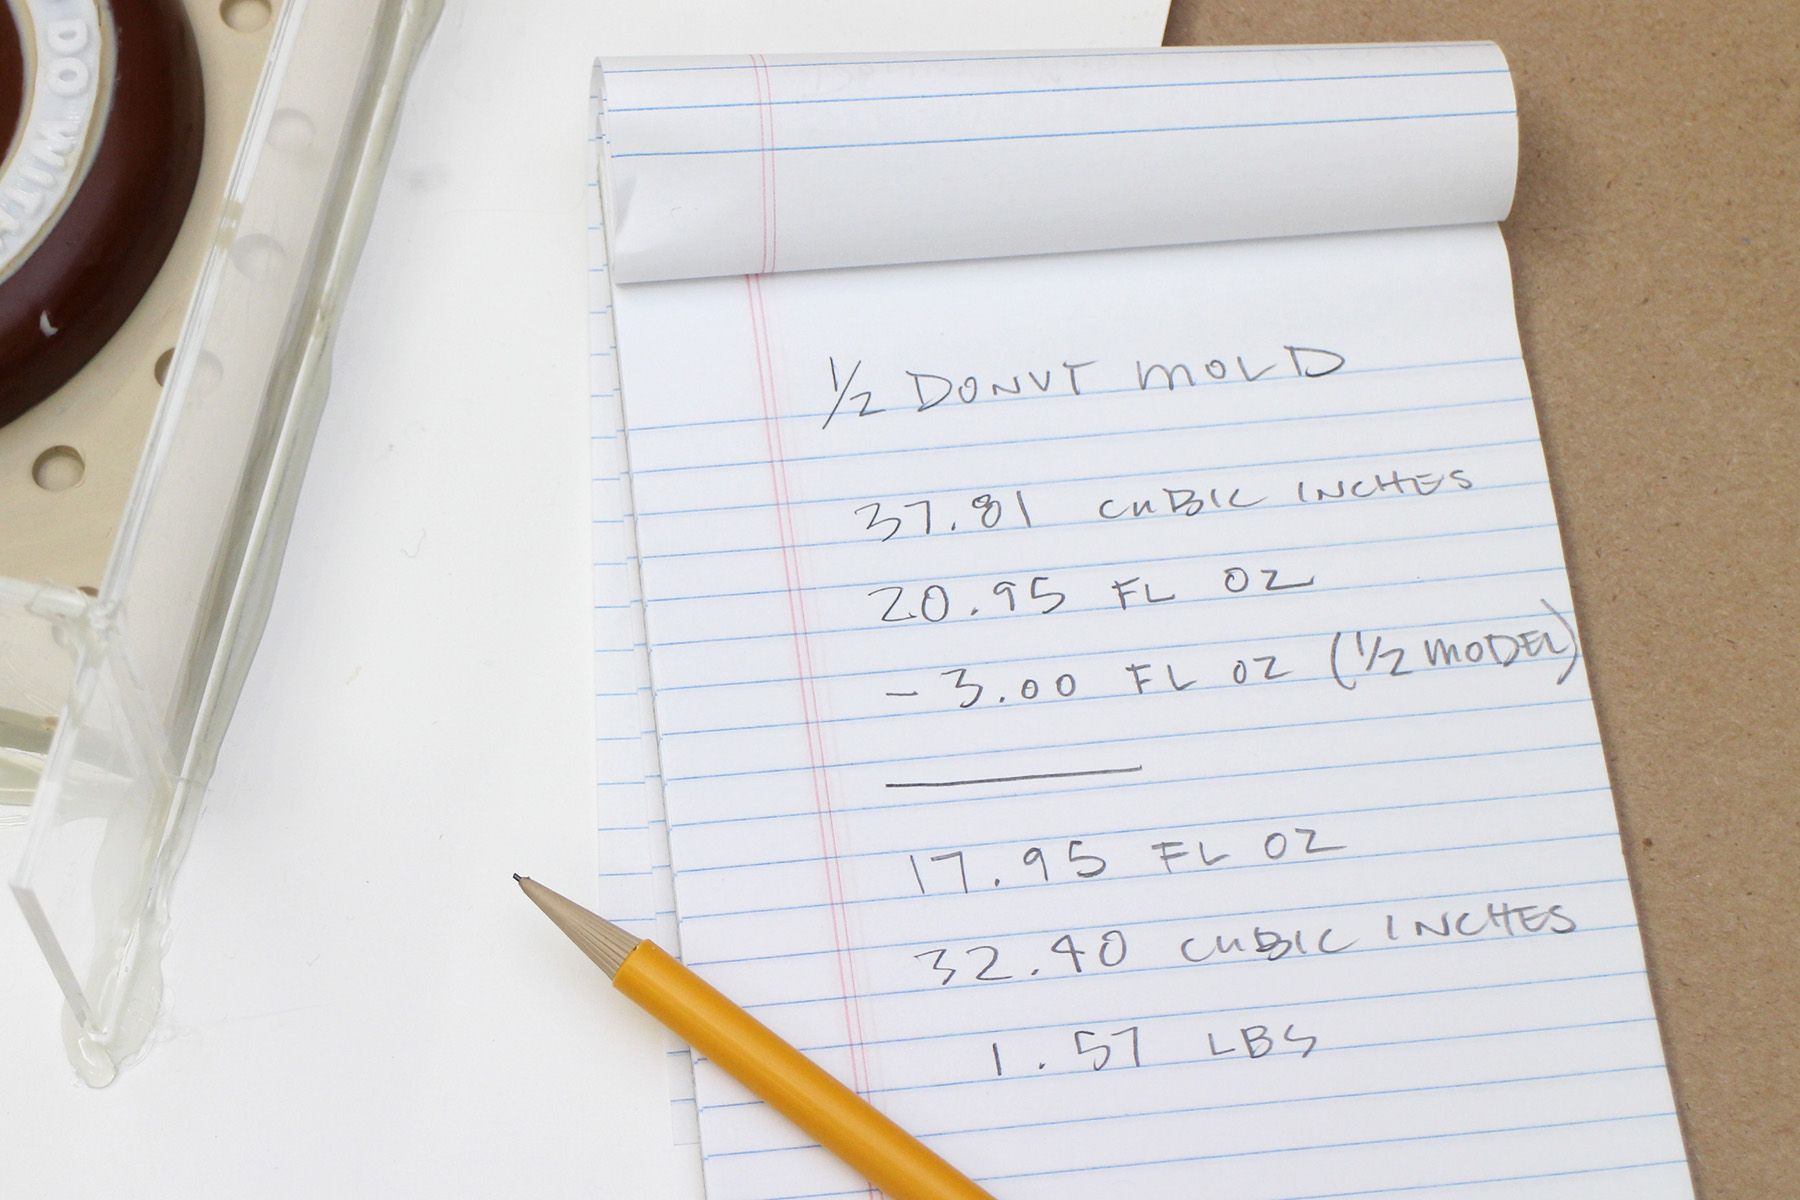 DO WITH
1/2 DONUT MOLD
37.81 CUBIC INCHES
20.95 FL OZ
- 3.00 FL OZ (1/2 MODEL)
17.95 FL OZ
32.40 CUBIC INCHES
1.57 LBS